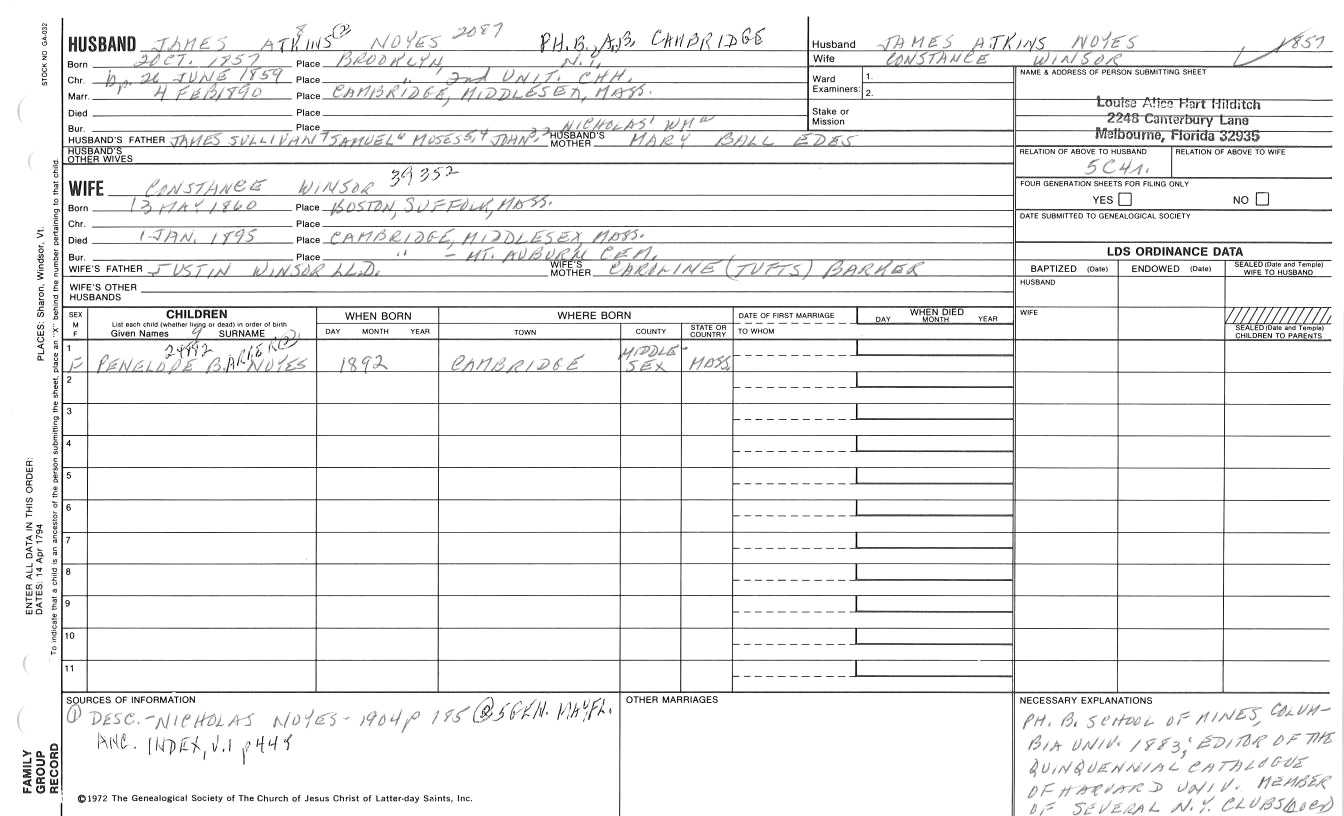 STOCK NO GA-032
HUSBAND JAMES ATKINS 8 (2) NOYES 2087 PH.B., A.B. CAMBRIDGE
Born 20 OCT. 1857 Place BROOKLYN, N.Y.
Chr. bp. 26 JUNE 1859 Place " 2nd UNIT. CHH.
Marr. 4 FEB 1890 Place CAMBRIDGE, MIDDLESEX, MASS.
Died Place
Bur. Place NICHOLAS' WM
HUSBAND'S FATHER JAMES SULLIVAN 7 SAMUEL 6 MOSES 5,4 JOHN 3,2 HUSBAND'S MOTHER MARY BALL EDES
HUSBAND'S OTHER WIVES
WIFE CONSTANCE WINSOR 39352
Born 13 MAY 1860 Place BOSTON, SUFFOLK, MASS.
Chr. Place
Died 1 JAN. 1895 Place CAMBRIDGE, MIDDLESEX, MASS.
Bur. Place " - MT. AUBURN CEM.
WIFE'S FATHER JUSTIN WINSOR LL.D. WIFE'S MOTHER CAROLINE (TUFTS) BARKER
WIFE'S OTHER HUSBANDS
Husband JAMES ATKINS NOYES 1857
Wife CONSTANCE WINSOR
Ward Examiners: 1.
2.
Stake or Mission
NAME & ADDRESS OF PERSON SUBMITTING SHEET
Louise Alice Hart Hilditch
2248 Canterbury Lane
Melbourne, Florida 32935
RELATION OF ABOVE TO HUSBAND RELATION OF ABOVE TO WIFE
5C4r.
FOUR GENERATION SHEETS FOR FILING ONLY
YES NO
DATE SUBMITTED TO GENEALOGICAL SOCIETY
LDS ORDINANCE DATA
BAPTIZED (Date) ENDOWED (Date) SEALED (Date and Temple) WIFE TO HUSBAND
HUSBAND
WIFE
SEALED (Date and Temple) CHILDREN TO PARENTS
SEX M F
CHILDREN
List each child (whether living or dead) in order of birth
Given Names SURNAME
WHEN BORN
DAY MONTH YEAR
WHERE BORN
TOWN COUNTY STATE OR COUNTRY
DATE OF FIRST MARRIAGE
TO WHOM
WHEN DIED
DAY MONTH YEAR
1 F PENELOPE BARKER 9 (2) NOYES 1892 CAMBRIDGE MIDDLE-SEX MASS
2
3
4
5
6
7
8
9
10
11
PLACES: Sharon, Windsor, Vt.
ENTER ALL DATA IN THIS ORDER:
DATES: 14 Apr 1794
To indicate that a child is an ancestor of the person submitting the sheet, place an "X" behind the number pertaining to that child.
FAMILY GROUP RECORD
SOURCES OF INFORMATION
(1) DESC.-NICHOLAS NOYES-1904 p 185 (2) 5 GEN. MAYFL.
ANC. INDEX, V.1 p448
OTHER MARRIAGES
NECESSARY EXPLANATIONS
PH. B. SCHOOL OF MINES, COLUM-
BIA UNIV. 1883; EDITOR OF THE
QUINQUENNIAL CATALOGUE
OF HARVARD UNIV. MEMBER
OF SEVERAL N.Y. CLUBS
©1972 The Genealogical Society of The Church of Jesus Christ of Latter-day Saints, Inc.